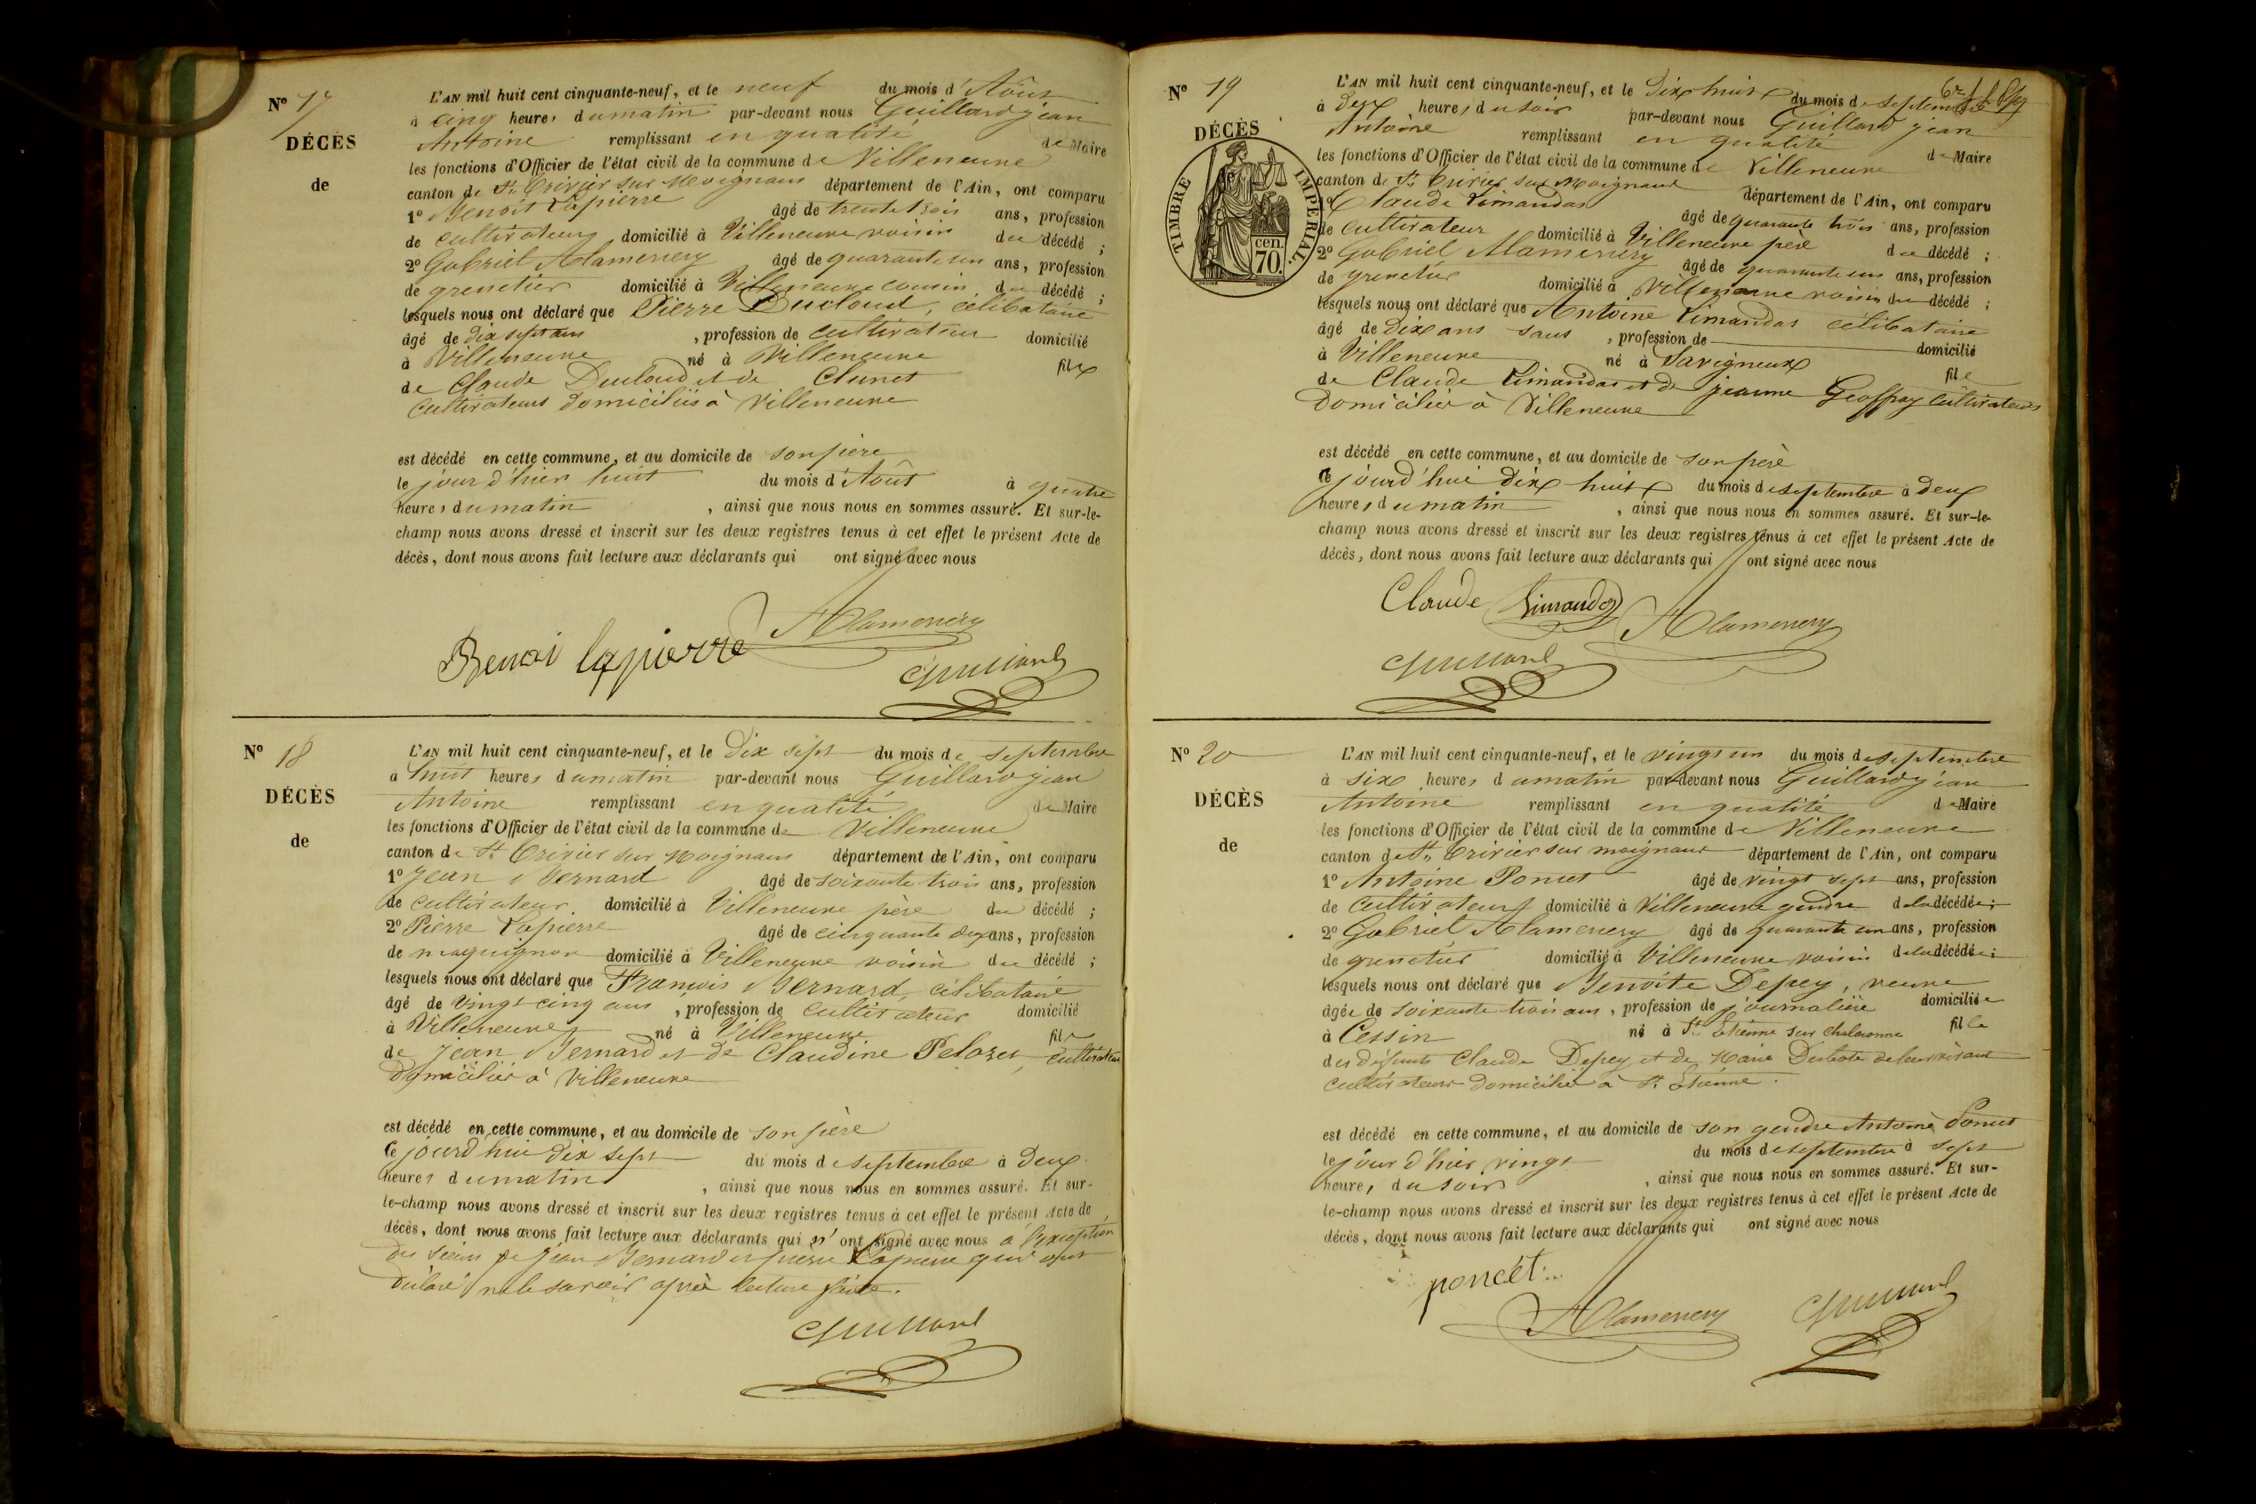 N° 17
DÉCÈS
de
L'AN mil huit cent cinquante-neuf, et le neuf du mois d'Août
à cinq heures du matin par-devant nous Guillard jean
Antoine remplissant en qualité de Maire
les fonctions d'Officier de l'état civil de la commune de Villeneuve
canton de St Trivier sur Moignans département de l'Ain, ont comparu
1° Benoit Lapierre âgé de trente trois ans, profession
de cultivateur domicilié à Villeneuve voisin du décédé ;
2° Gabriel Alamercery âgé de quarante un ans, profession
de grenetier domicilié à Villeneuve cousin du décédé ;
lesquels nous ont déclaré que Pierre Ducloud, célibataire
âgé de dix sept ans , profession de cultivateur domicilié
à Villeneuve né à Villeneuve fils
de Claude Ducloud et de Clunet
cultivateurs domiciliés à Villeneuve
est décédé en cette commune, et au domicile de son père
le jour d'hier huit du mois d'Août à quatre
heures du matin , ainsi que nous nous en sommes assuré. Et sur-le-
champ nous avons dressé et inscrit sur les deux registres tenus à cet effet le présent Acte de
décès, dont nous avons fait lecture aux déclarants qui ont signé avec nous
Benoi lapierre Alamercery
Guillard
N° 18
DÉCÈS
de
L'AN mil huit cent cinquante-neuf, et le dix sept du mois de septembre
à huit heures du matin par-devant nous Guillard jean
Antoine remplissant en qualité de Maire
les fonctions d'Officier de l'état civil de la commune de Villeneuve
canton de St Trivier sur Moignans département de l'Ain, ont comparu
1° Jean Bernard âgé de soixante trois ans, profession
de cultivateur domicilié à Villeneuve père du décédé ;
2° Pierre Lapierre âgé de cinquante deux ans, profession
de maquignon domicilié à Villeneuve voisin du décédé ;
lesquels nous ont déclaré que François Bernard, célibataire
âgé de vingt cinq ans , profession de cultivateur domicilié
à Villeneuve né à Villeneuve fils
de Jean Bernard et de Claudine Pelozet, cultivateurs
domiciliés à Villeneuve
est décédé en cette commune, et au domicile de son père
ce jourd'hui dix sept du mois de septembre à deux
heures du matin , ainsi que nous nous en sommes assuré. Et sur-
le-champ nous avons dressé et inscrit sur les deux registres tenus à cet effet le présent Acte de
décès, dont nous avons fait lecture aux déclarants qui n'ont signé avec nous à l'exception
des sieurs de jean Bernard et pierre Lapierre qui ont
déclaré ne le savoir après lecture faite.
Guillard
N° 19
DÉCÈS
TIMBRE IMPÉRIAL.
cen. 70.
L'AN mil huit cent cinquante-neuf, et le dix huit du mois de septembre
à deux heures du soir par-devant nous Guillard jean
Antoine remplissant en qualité de Maire
les fonctions d'Officier de l'état civil de la commune de Villeneuve
canton de St Trivier sur Moignans département de l'Ain, ont comparu
1° Claude Limandas âgé de quarante trois ans, profession
de cultivateur domicilié à Villeneuve père du décédé ;
2° Gabriel Alamercery âgé de quarante un ans, profession
de grenetier domicilié à Villeneuve voisin du décédé ;
lesquels nous ont déclaré que Antoine Limandas célibataire
âgé de dix ans sans , profession de domicilié
à Villeneuve né à Savigneux fils
de Claude Limandas et de jeanne Geoffray cultivateurs
domiciliés à Villeneuve
est décédé en cette commune, et au domicile de son père
ce jourd'hui dix huit du mois de septembre à deux
heures du matin , ainsi que nous nous en sommes assuré. Et sur-le-
champ nous avons dressé et inscrit sur les deux registres tenus à cet effet le présent Acte de
décès, dont nous avons fait lecture aux déclarants qui ont signé avec nous
Claude Limandas Alamercery
Guillard
N° 20
DÉCÈS
de
L'AN mil huit cent cinquante-neuf, et le vingt un du mois de septembre
à six heures du matin par-devant nous Guillard jean
Antoine remplissant en qualité de Maire
les fonctions d'Officier de l'état civil de la commune de Villeneuve
canton de St Trivier sur moignans département de l'Ain, ont comparu
1° Antoine Poncet âgé de vingt sept ans, profession
de cultivateur domicilié à Villeneuve gendre de la décédée ;
2° Gabriel Alamercery âgé de quarante un ans, profession
de grenetier domicilié à Villeneuve voisin de la décédée ;
lesquels nous ont déclaré que Benoite Depey, veuve
âgée de soixante trois ans, profession de journalière domiciliée
à Cessin né à St Etienne sur chalaronne fille
des défunts Claude Depey et de Marie de leur vivant
cultivateurs domiciliés à St Etienne.
est décédé en cette commune, et au domicile de son gendre Antoine Poncet
le jour d'hier vingt du mois de septembre à sept
heures du soir , ainsi que nous nous en sommes assuré. Et sur-
le-champ nous avons dressé et inscrit sur les deux registres tenus à cet effet le présent Acte de
décès, dont nous avons fait lecture aux déclarants qui ont signé avec nous
poncet
Alamercery Guillard